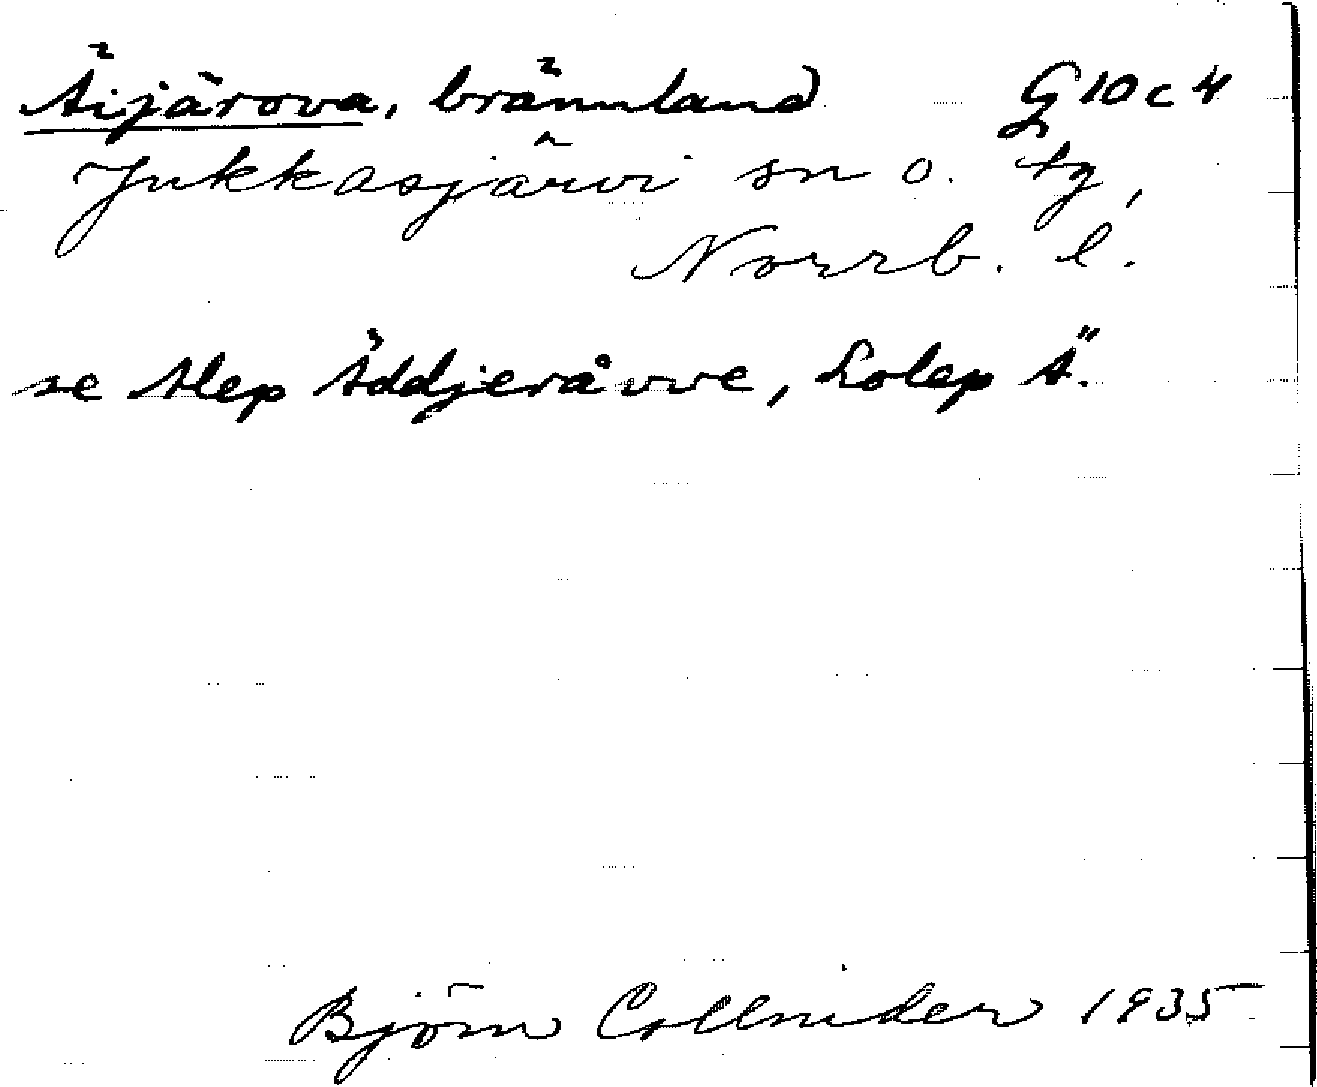 Äijärova, brännland G 10 c 4
Jukkasjärvi sn o. tg,
Norrb. l.
se Alep Äddjeråvve, Lolep Ä.
Björn Collinder 1935